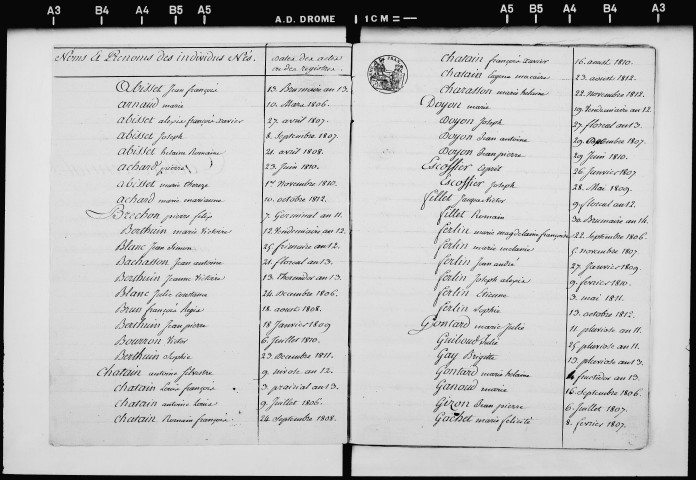 A3 B4 A4 B5 A5 A.D. DROME 1 CM A5 B5 A4 B4 A3
Noms et Prenoms des individus Nés. Dates des actes ou des registres.
Abisset Jean françois 13. Brumaire an 13.
arnaud marie 10. Mars 1806.
abisset alexis françois xavier 27. avril 1807.
abisset Joseph 8. Septembre 1807.
abisset Romaine 21. avril 1808.
achard pierre 23. Juin 1810.
abisset marie 1er Novembre 1810.
achard marie marianne 10. octobre 1812.
Brechon pierre felix 7. Germinal an 11.
Berthuin marie Victoire 12. Vendemiaire an 12.
Blanc Jean Simon 25. frimaire an 12.
Bachasson Jean antoine 21. floreal an 13.
Berthuin Jeanne Victoire 13. Thermidor an 13.
Blanc Julie 24. Decembre 1806.
Brun françois Regis 18. aout 1808.
Berthuin Jean pierre 18 Janvier 1809
Bouvron Victor 6. Juillet 1810.
Berthuin Sophie 23. decembre 1811.
Chatain antoine Silvestre 9. nivose an 12.
Chatain Louis françois 3. prairial an 13.
Chatain antoine Louis 9. Juillet 1806.
Chatain Romain françois 24. Septembre 1808.
Chatain françois xavier 16. aout 1810.
Chatain Eugene macaire 23. aout 1812.
Charasson marie helene 22. Novembre 1812.
Doyon marie 19. Vendemiaire an 12.
Doyon Joseph 27. floreal an 13.
Doyon Jean antoine 29. Septembre 1807.
Doyon Jean pierre 29 Juin 1810.
Escoffier Esprit 26. Janvier 1807
Escoffier Joseph 28. Mai 1809.
Fillet Jacques Victor 9. floreal an 12.
fillet Romain 30. Brumaire an 14.
ferlin marie magdelaine françoise 22. Septembre 1806.
ferlin marie melanie 5. novembre 1807
ferlin Jean andré 27. Janvier 1809.
ferlin Joseph alexis 9. fevrier 1810.
ferlin Etienne 3. mai 1811.
ferlin Sophie 13. octobre 1812.
Gontard marie Julie 11. pluviose an 11.
Guiboud Julie 25. pluviose an 11.
Gay Brigitte 13. pluviose an 13.
Gontard marie helaine fructidor an 13.
Ganoud marie 16. Septembre 1806.
Geron Jean pierre 6. Juillet 1807.
Gachet marie felicité 8. fevrier 1807.